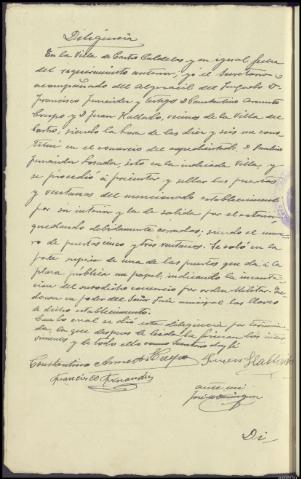 Diligencia
En la Villa de Castro Caldelas y en igual fecha
del requerimiento anterior; yo el Secretario
acompañado del Alguacil del Juzgado D.
Francisco Fernández y testigos D. Constantino
y D. Juan vecinos de la Villa de
Castro, siendo la hora de las diez y seis me cons-
tituí en el comercio del expedientado D.
Fernández sito en la indicada Villa, y
se procedió a precintar y sellar las puertas
y ventanas del mencionado establecimiento
por su interior y la de salida por el exterior
quedando debidamente cerradas; siendo el núme-
ro de puertas cinco y tres ventanas. Se colocó en la
parte superior de una de las puertas que da a la
plaza pública un papel, indicando la incauta-
ción del susodicho comercio por orden Militar.
en poder del Señor Juez municipal las llaves
de dicho establecimiento.
Con lo cual se dio esta diligencia por termina-
da, la que después de leída la firman los
y de todo ello como Secretario doy fe.
Constantino
Francisco Fernandez
ante mi
Di